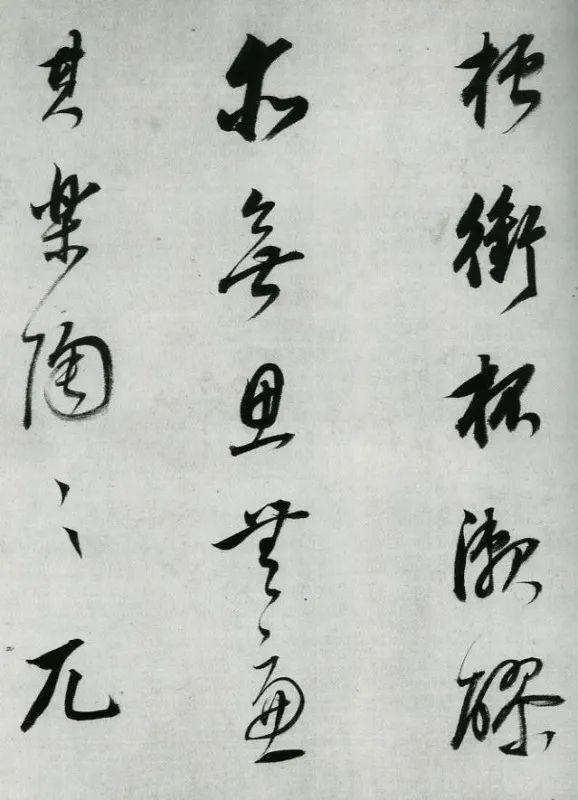 槽銜杯漱醪
無思無慮
其樂陶〻兀